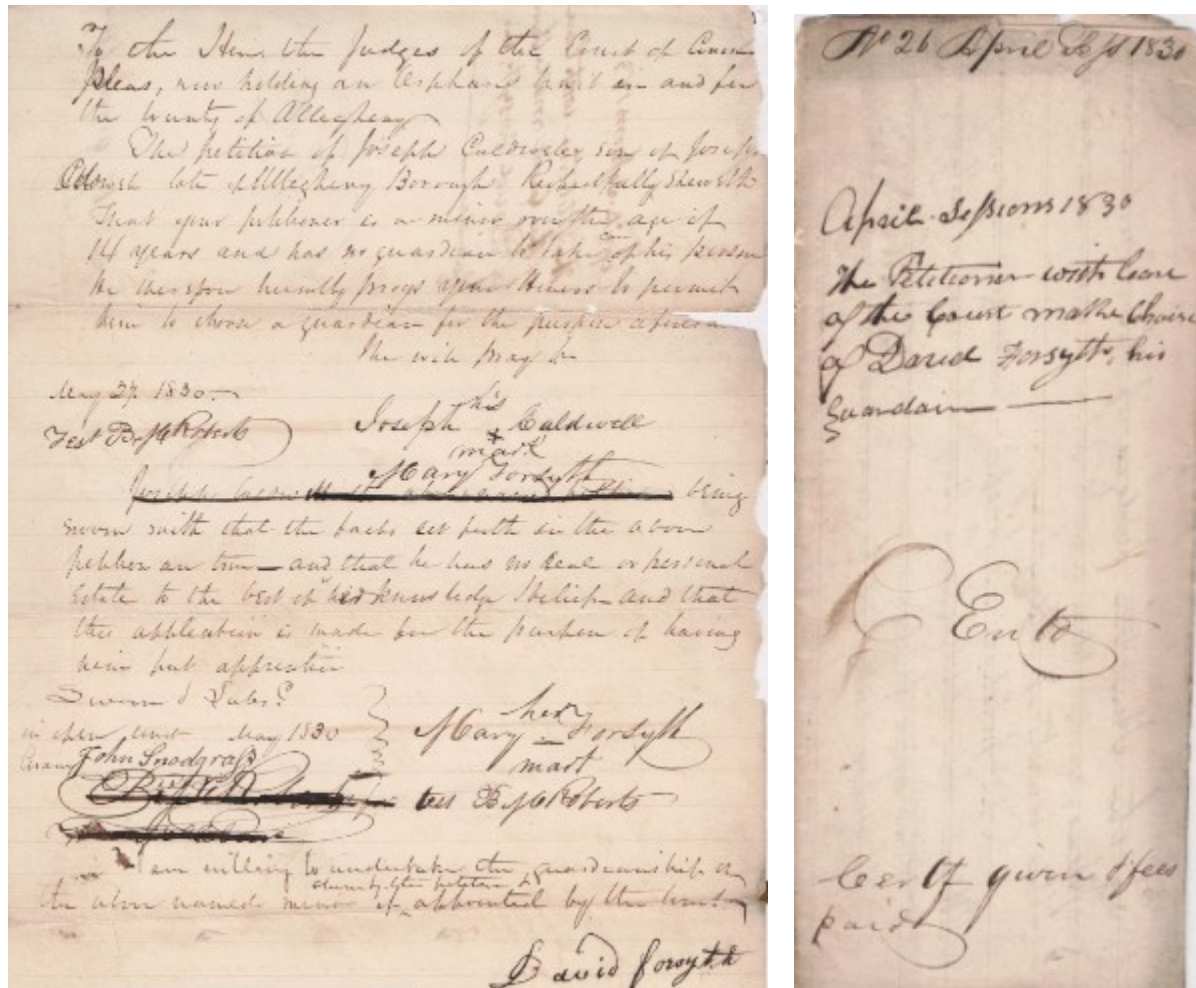 To the Hon. the Judges of the Court of Common
pleas, now holding an Orphans Court in and for
the County of Allegheny
The petition of Joseph Caldwell, son of Joseph
late of Allegheny Borough Respectfully Sheweth
That your petitioner is a minor over the age of
14 years and has no guardian to take care of his person
he therefore humbly prays your Honors to permit
him to choose a guardian for the purpose aforesaid
He will pray &c
May 27 1830
Test B McRoberts
Joseph his Caldwell
x
mark
Mary Forsyth
being
sworn saith that the facts set forth in the above
petition are true — and that he has no real or personal
Estate to the best of her knowledge & belief — and that
this application is made for the purpose of having
him put apprentice
Sworn & Subs.
in open court May 1830
John Snodgrass
her
Mary – Forsyth
mark
test B McRoberts
I am willing to undertake the guardianship of
the above named minor if appointed by the Court
David Forsyth
No 26 April Sess 1830
April Sessions 1830
The Petitioner with leave
of the Court makke Choice
of David Forsyth, his
guardain —
Entd
Certf given & fees
paid